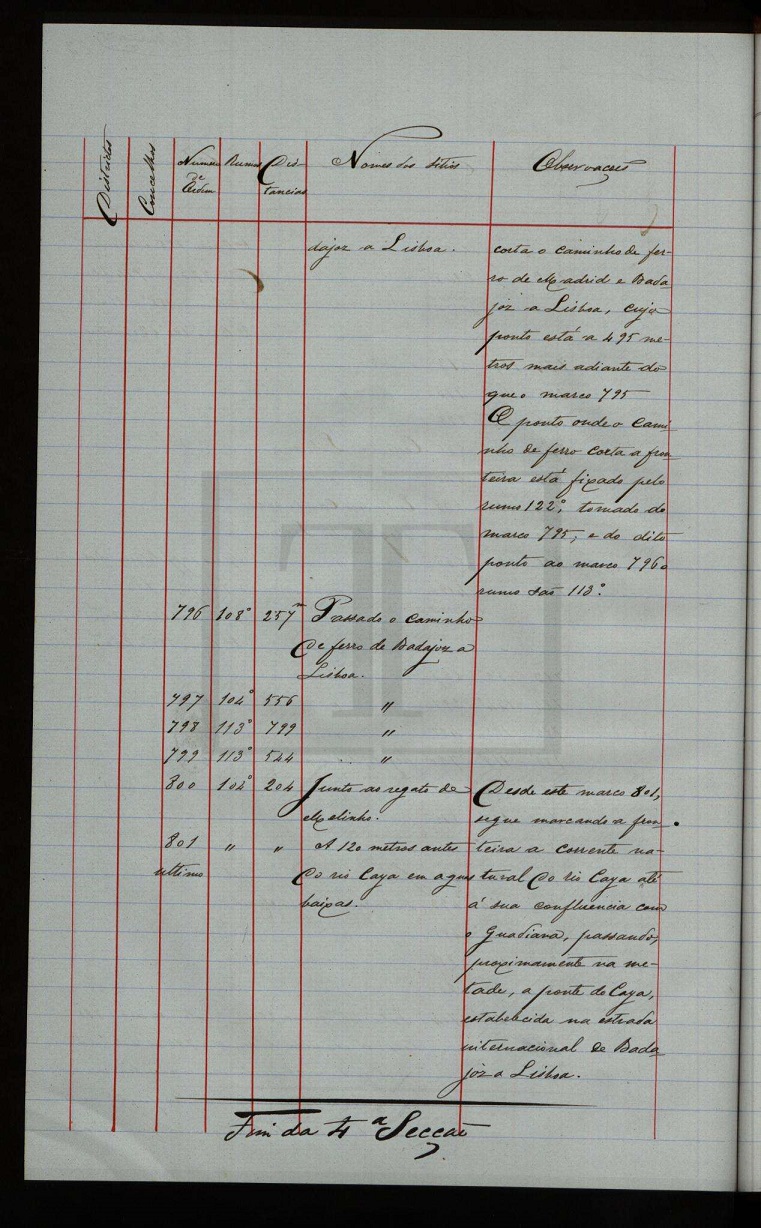 Districtos
Concelhos
Numero de Ordem
Rumos
Distancias
Nomes dos sitios
Observações
dajoz a Lisboa.
corta o caminho de fer-
ro de Madrid e Bada
joz a Lisboa, cujo
ponto está a 495 me-
tros mais adiante do
que o marco 795
O ponto onde o cami
nho de ferro corta a fron
teira está fixado pelo
rumo 122°, tomado do
marco 795, e do dito
ponto ao marco 796 o
rumo são 113°.
796 108° 257m Passado o caminho
de ferro de Badajoz a
Lisboa.
797 104° 556 "
798 113° 799 "
799 113° 544 "
800 104° 204 Junto ao regato de
Molinho.
801 " " A 120 metros antes
ultimo do rio Caya em aguas
baixas.
Desde este marco 801,
segue marcando a fron-
teira a corrente na-
tural do rio Caya até
á sua confluencia com
o Guadiana, passando,
proximamente na me-
tade, a ponte do Caya,
estabelecida na estrada
internacional de Bada
joz a Lisboa.
Fim da 4ª Secção